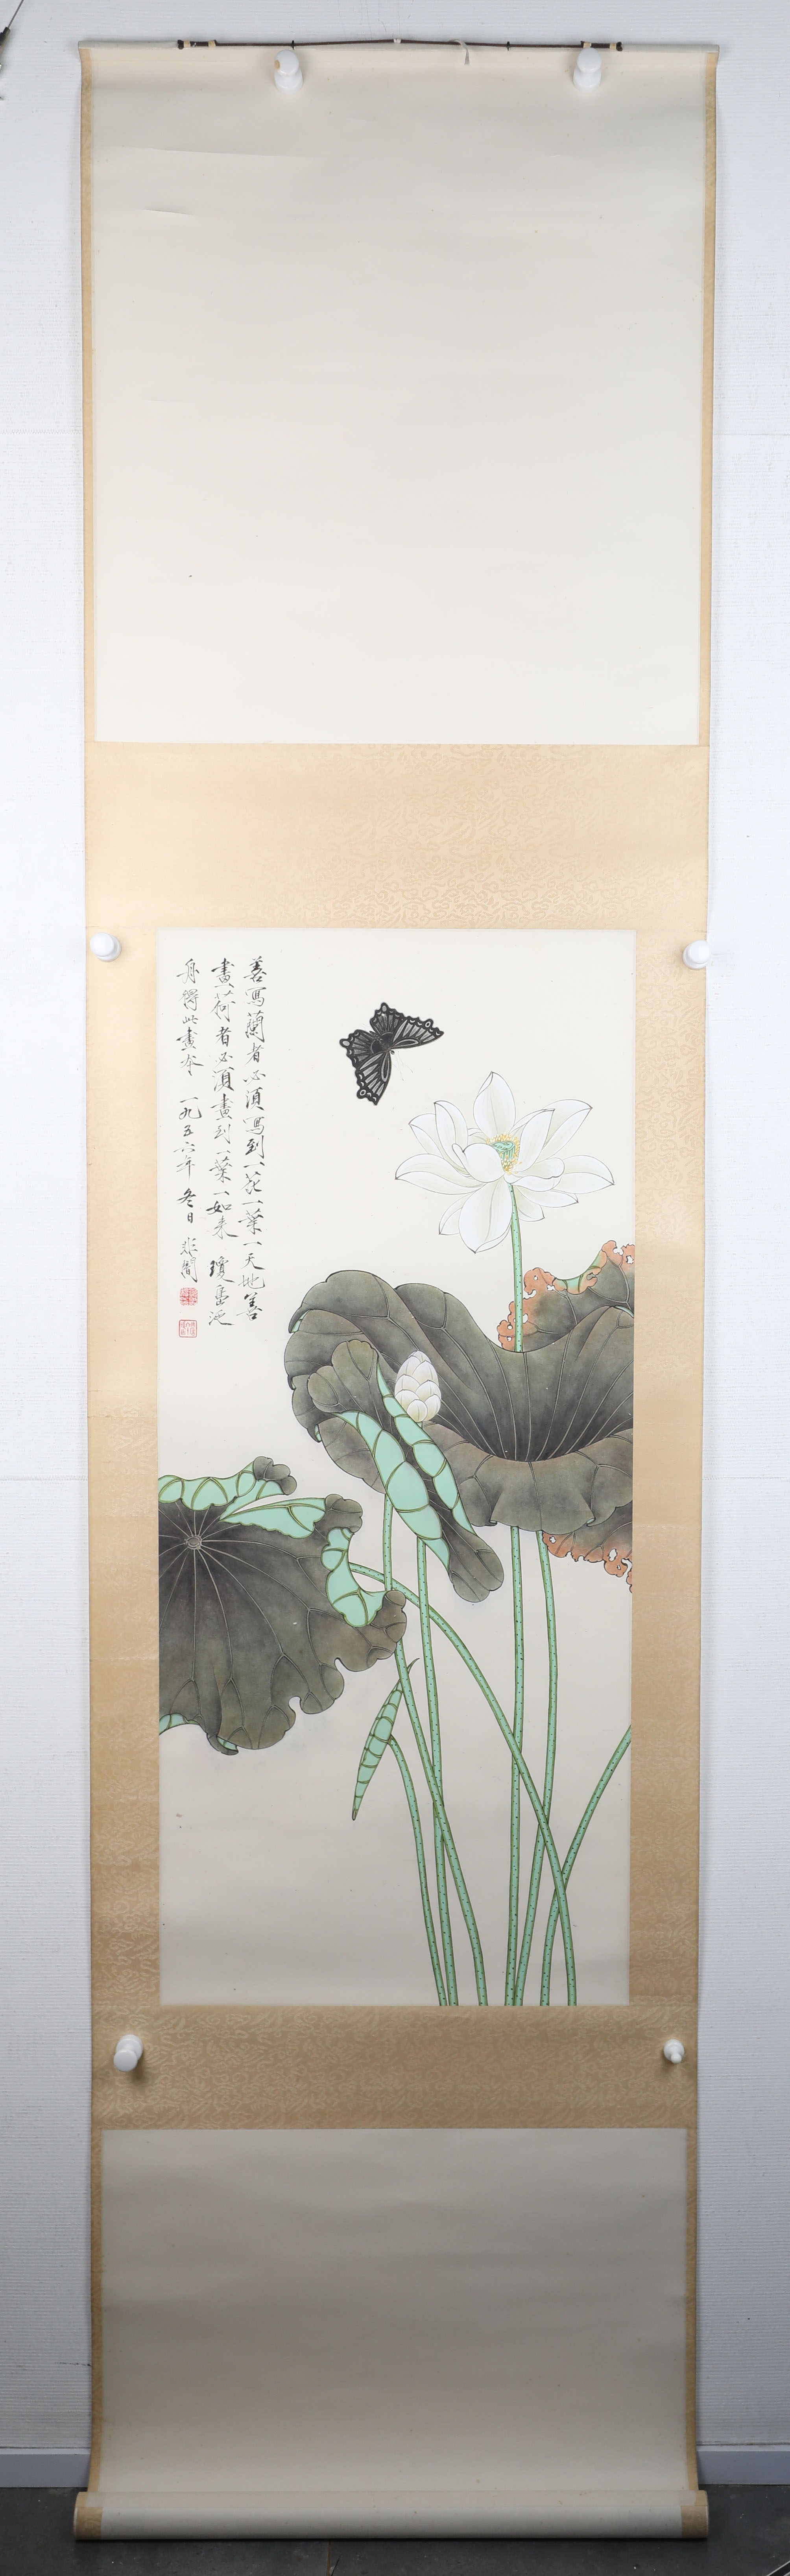 善寫蘭者必須寫到一花一葉一天地善
畫荷者必須畫到一葉一如来 瓊島泛
舟得此畫本 一九五六年 冬日 非闇